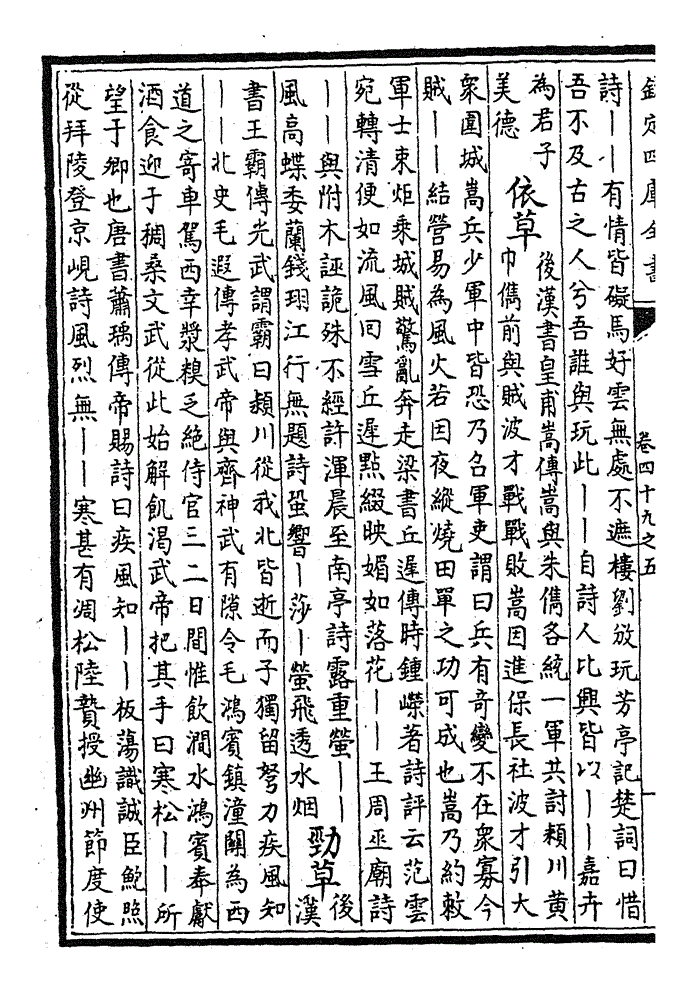 欽定四庫全書
卷四十九之五
詩||有情皆礙馬好雲無處不遮樓劉攽玩芳亭記楚詞曰惜
吾不及古之人兮吾誰與玩此||自詩人比興皆以||嘉卉
為君子
美德
依草
後漢書皇甫嵩傳嵩與朱儁各統一軍共討潁川黃
巾儁前與賊波才戰戰敗嵩因進保長社波才引大
衆圍城嵩兵少軍中皆恐乃召軍吏謂曰兵有奇變不在衆寡今
賊||結營易為風火若因夜縱燒田單之功可成也嵩乃約敕
軍士束炬乘城賊驚亂奔走梁書丘遲傳時鍾嶸著詩評云范雲
宛轉清便如流風回雪丘遲點綴映媚如落花||王周巫廟詩
||與附木誣詭殊不經許渾晨至南亭詩露重螢||
風高蝶委蘭錢珝江行無題詩蛩響|莎|螢飛透水烟
勁草
後
漢
書王霸傳光武謂霸曰潁川從我北皆逝而子獨留努力疾風知
||北史毛遐傳孝武帝與齊神武有隙令毛鴻賓鎮潼關為西
道之寄車駕西幸漿糗乏絶侍官三二日間惟飲澗水鴻賓奉獻
酒食迎于稠桑文武從此始解飢渴武帝把其手曰寒松||所
望于卿也唐書蕭瑀傳帝賜詩曰疾風知||板蕩識誠臣鮑照
從拜陵登京峴詩風烈無||寒甚有凋松陸贄授幽州節度使